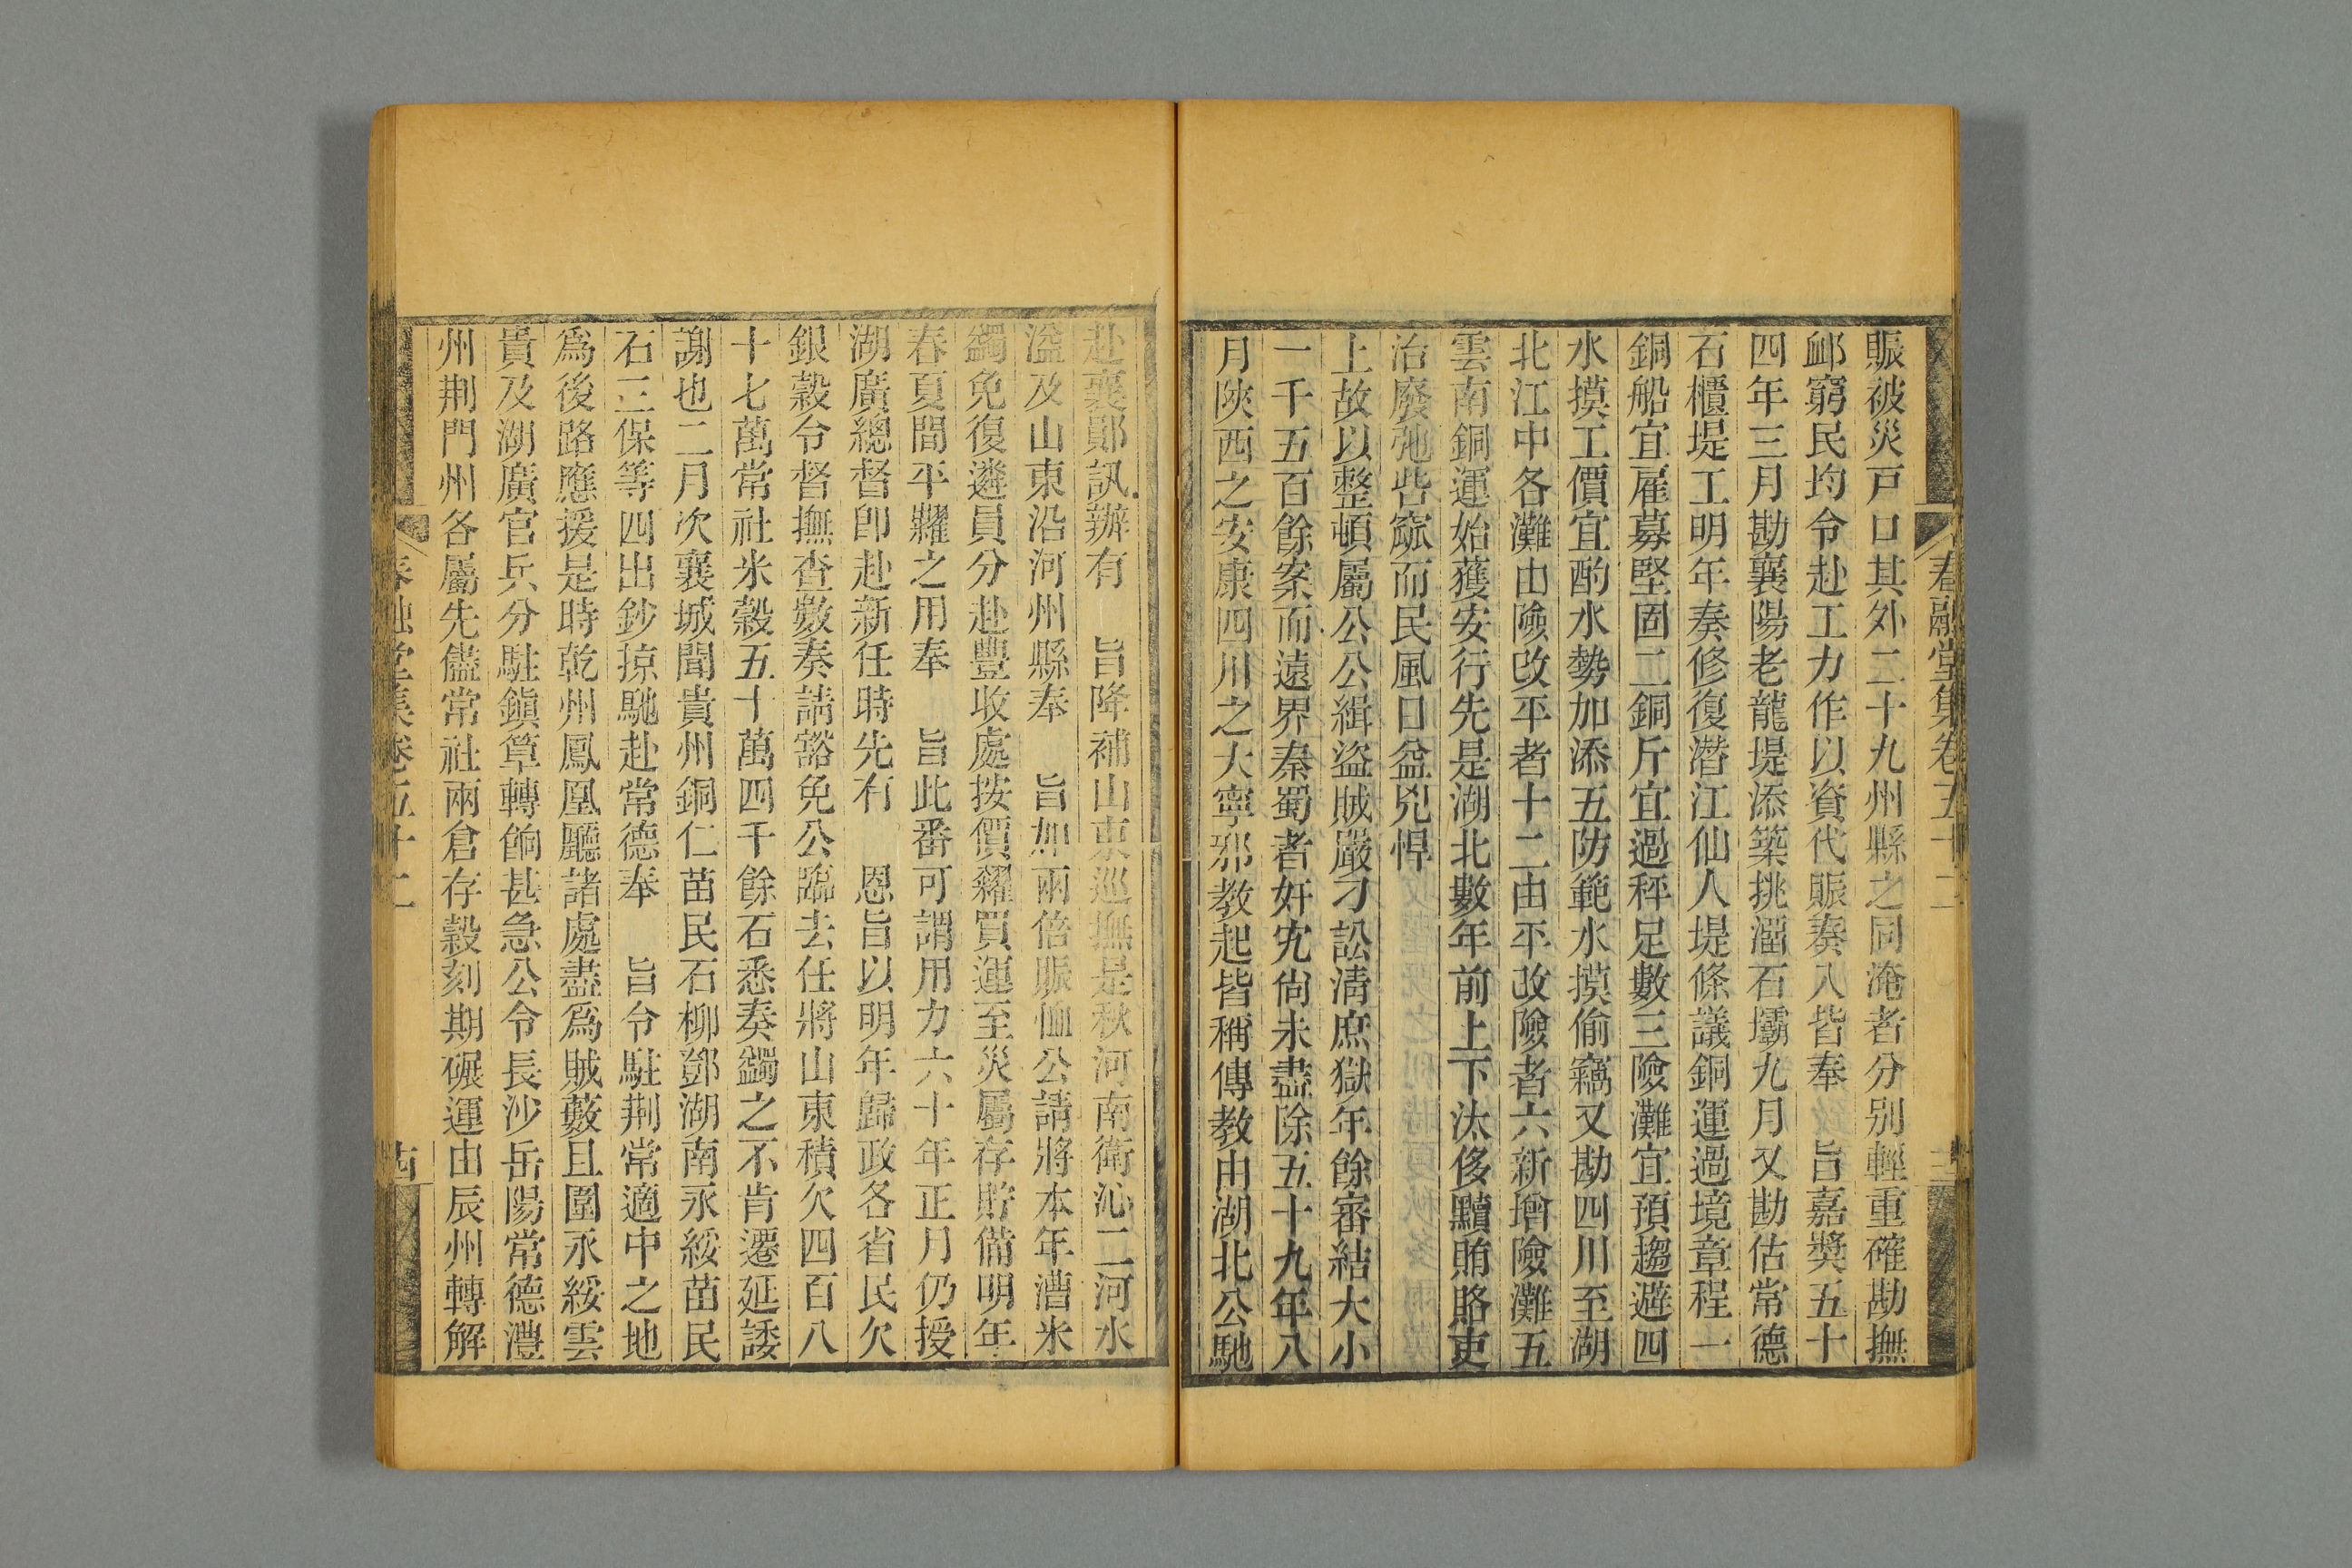 春融堂集卷五十二
賑被災戸口其外二十九州縣之同淹者分别輕重確勘撫
䘏窮民均令赴工力作以資代賑奏入皆奉 旨嘉奬五十
四年三月勘襄陽老龍堤添築挑溜石壩九月又勘估常德
石櫃堤工明年奏修復潛江仙人堤條議銅運過境章程一
銅船宜雇募堅固二銅斤宜過秤足數三險灘宜預趨避四
水摸工價宜酌水勢加添五防範水摸偷竊又勘四川至湖
北江中各灘由險改平者十二由平改險者六新增險灘五
雲南銅運始獲安行先是湖北數年前上下汰侈黷賄賂吏
治廢弛呰窳而民風日益兇悍
上故以整頓屬公公緝盜賊嚴刁訟清庶獄年餘審結大小
一千五百餘案而遠界秦蜀者奸宄尙未盡除五十九年八
月陜西之安康四川之大寧邪教起皆稱傳教由湖北公馳
赴襄鄖訊辦有 旨降補山東巡撫是秋河南衛沁二河水
溢及山東沿河州縣奉 旨加兩倍賑恤公請將本年漕米
蠲免復遴員分赴豐收處按價糴買運至災屬存貯備明年
春夏間平糶之用奉 旨此番可謂用力六十年正月仍授
湖廣總督卽赴新任時先有 恩旨以明年歸政各省民欠
銀穀令督撫查數奏請豁免公臨去任將山東積欠四百八
十七萬常社米穀五十萬四千餘石悉奏蠲之不肯遷延諉
謝也二月次襄城聞貴州銅仁苗民石柳鄧湖南永綏苗民
石三保等四出鈔掠馳赴常德奉 旨令駐荆常適中之地
爲後路應援是時乾州鳳凰廳諸處盡爲賊藪且圍永綏雲
貴及湖廣官兵分駐鎭筸轉餉甚急公令長沙岳陽常德澧
州荆門州各屬先儘常社兩倉存穀刻期碾運由辰州轉解
春融堂集卷五十二